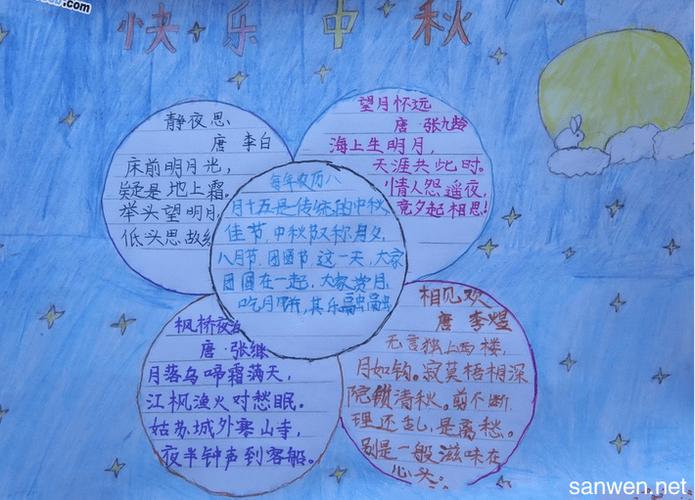 .com
快乐中秋
静夜思
唐 李白
床前明月光,
疑是地上霜。
举头望明月,
低头思故
望月怀远
唐·张九龄
海上生明月,
天涯共此时。
情人怨遥夜,
竟夕起相思!
每年农历八
月十五是传统的中秋
佳节,中秋又称月夕,
八月节、团圆节,这一天,大家
团圆在一起,大家赏月,
吃月饼,其乐融融
枫桥夜泊
唐·张继
月落乌啼霜满天,
江枫渔火对愁眠。
姑苏城外寒山寺,
夜半钟声到客船。
相见欢
唐 李煜
无言独上西楼,
月如钩。寂寞梧桐深
院锁清秋。剪不断,
理还乱,是离愁。
别是一般滋味在
心头。
sanwen.net